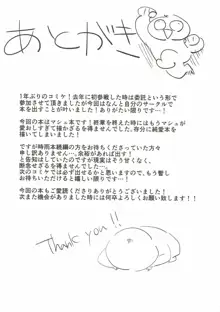 あとがき
1年ぶりのコミケ!去年に初参戦した時は委託という形で
参加させて頂きましたが今回はなんと自分のサークルで
本を出すことが叶いました!ありがたい限りです…!
今回の本はマシュ本です!終章を終えた時にはもうマシュが
愛おしすぎて描かざるを得ませんでした、存分に純愛本を
描いてしまいました!
ですが時雨本続編の方をお待ちくださっていた方々
申し訳ありません…、余裕があれば出す!
と告知はしていたのですが現実はそう甘くなく、
断念せざるを得ませんでした…!
次のコミケでは必ず出せるかと思いますので、もう暫し
お待ちいただけると嬉しい限りです…!
今回の本もご愛読くださりありがとうございました!
次また機会がありました時には何卒よろしくお願い致します!!
Thank you!!